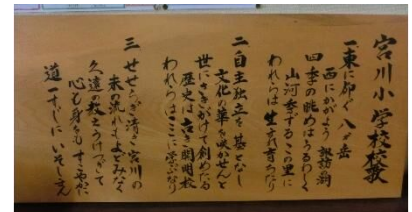 宮川小学校校歌
一 東に仰ぐ 八ヶ岳
西にかがよう 諏訪湖
四季の眺めはうるわしく
山河秀ずるこの里に
われらは生まれ育ちたり
二 自主独立を 基となし
文化の華を咲かせんと
世にさきがけて創めたる
歴史は古き 開明校
われらはここに学ぶなり
三 せせらぎ清き 宮川の
末の流れもよどみなく
久遠の教えうけつぎて
心も身をもすこやかに
道一すじに いそしまん